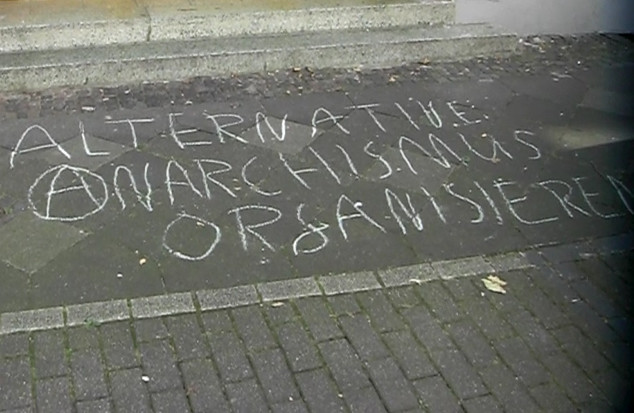 ALTERNATIVE:
ANARCHISMUS
ORGANISIEREN